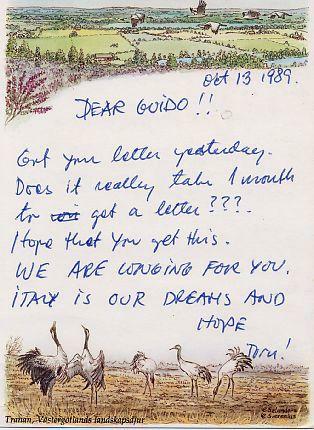 Oct 13 1989.
DEAR GUIDO !!
Got your letter yesterday.
Does it really take 1 month
to get a letter ???.
Hope that you get this.
WE ARE LONGING FOR YOU.
ITALY IS OUR DREAMS AND
HOPE
Toru!
Tranan, Västergötlands landskapsdjur